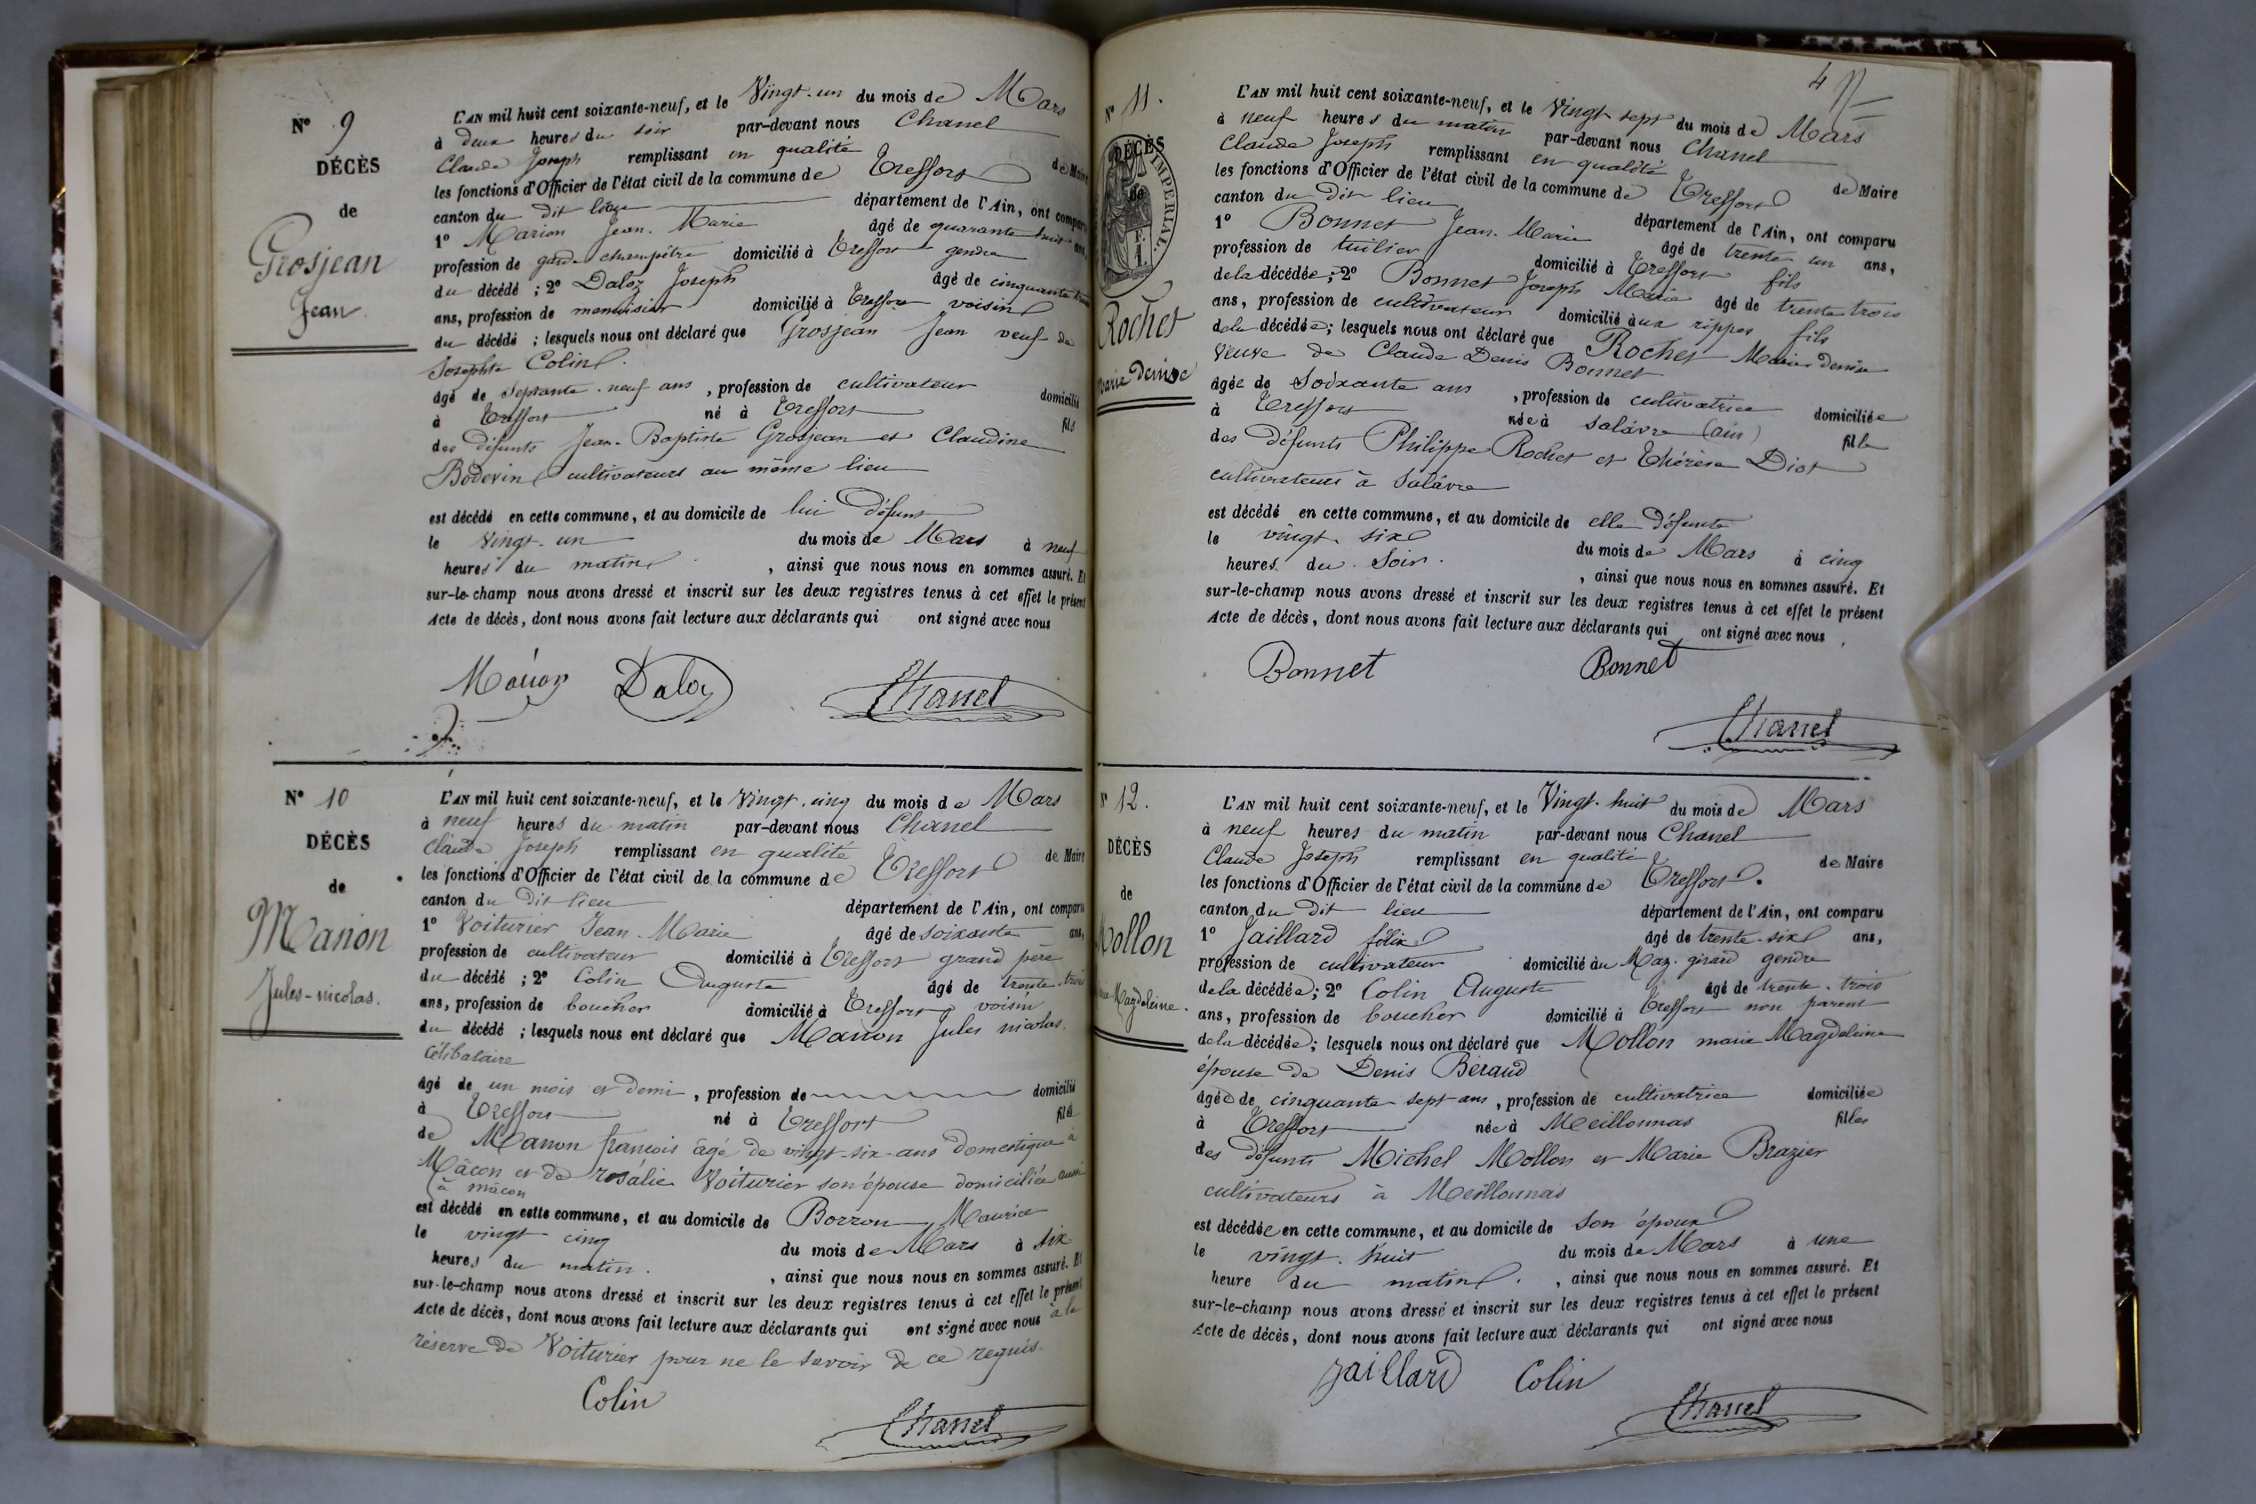 N° 9
DÉCÈS
de
Grosjean
Jean
L'AN mil huit cent soixante-neuf, et le Vingt-un du mois de Mars
à deux heures du soir par-devant nous Chanel
Claude Joseph remplissant en qualité de Maire
les fonctions d'Officier de l'état civil de la commune de Treffort
canton du dit lieu département de l'Ain, ont comparu
1° Marion Jean-Marie âgé de quarante huit ans,
profession de garde champêtre domicilié à Treffort gendre
du décédé ; 2° Daloz Joseph âgé de cinquante
ans, profession de menuisier domicilié à Treffort voisin
du décédé ; lesquels nous ont déclaré que Grosjean Jean veuf de
Josephte Colin.
âgé de septante-neuf ans, profession de cultivateur domicilié
à Treffort né à Treffort fils
des défunts Jean-Baptiste Grosjean et Claudine
Bodevin cultivateurs au même lieu
est décédé en cette commune, et au domicile de lui défunt
le Vingt-un du mois de Mars à neuf
heures du matin, ainsi que nous nous en sommes assuré. Et
sur-le-champ nous avons dressé et inscrit sur les deux registres tenus à cet effet le présent
Acte de décès, dont nous avons fait lecture aux déclarants qui ont signé avec nous
Marion Daloz Chanel
N° 10
DÉCÈS
de
Manon
Jules-nicolas.
L'AN mil huit cent soixante-neuf, et le Vingt-cinq du mois de Mars
à neuf heures du matin par-devant nous Chanel
Claude Joseph remplissant en qualité de Maire
les fonctions d'Officier de l'état civil de la commune de Treffort
canton du dit lieu département de l'Ain, ont comparu
1° Voiturier Jean-Marie âgé de soixante ans,
profession de cultivateur domicilié à Treffort grand père
du décédé ; 2° Colin Auguste âgé de trente-trois
ans, profession de boucher domicilié à Treffort voisin
du décédé ; lesquels nous ont déclaré que Manon Jules nicolas.
Célibataire
âgé de un mois et demi, profession de domicilié
à Treffort né à Treffort fils
de Manon françois âgé de vingt-six-ans domestique à
Mâcon et de rosalie Voiturier son épouse domiciliée aussi
à mâcon
est décédé en cette commune, et au domicile de Borron Maurice
le vingt cinq du mois de Mars à six
heures du matin., ainsi que nous nous en sommes assuré. Et
sur-le-champ nous avons dressé et inscrit sur les deux registres tenus à cet effet le présent
Acte de décès, dont nous avons fait lecture aux déclarants qui ont signé avec nous à la
réserve de Voiturier pour ne le savoir de ce requis.
Colin
Chanel
4
N° 11.
DÉCÈS
de
IMPERIAL
Rochet
Marie Denise
L'AN mil huit cent soixante-neuf, et le Vingt-sept du mois de Mars
à neuf heures du matin par-devant nous Chanel
Claude Joseph remplissant en qualité de Maire
les fonctions d'Officier de l'état civil de la commune de Treffort
canton du dit lieu département de l'Ain, ont comparu
1° Bonnet Jean-Marie âgé de trente un ans,
profession de tuilier domicilié à Treffort fils
de la décédée ; 2° Bonnet Joseph Marie âgé de trente trois
ans, profession de cultivateur domicilié aux rippes fils
de la décédée ; lesquels nous ont déclaré que Rochet Marie denise
Veuve de Claude Denis Bonnet
âgée de Soixante ans, profession de cultivatrice domiciliée
à Treffort née à Salâvre (ain) fille
des défunts Philippe Rochet et Thérèse Diot
cultivateurs à Salâvre
est décédé en cette commune, et au domicile de elle défunte
le vingt-six du mois de Mars à cinq
heures du Soir., ainsi que nous nous en sommes assuré. Et
sur-le-champ nous avons dressé et inscrit sur les deux registres tenus à cet effet le présent
Acte de décès, dont nous avons fait lecture aux déclarants qui ont signé avec nous
Bonnet Bonnet
Chanel
N° 12.
DÉCÈS
de
Mollon
Magdeleine.
L'AN mil huit cent soixante-neuf, et le Vingt-huit du mois de Mars
à neuf heures du matin par-devant nous Chanel
Claude Joseph remplissant en qualité de Maire
les fonctions d'Officier de l'état civil de la commune de Treffort.
canton du dit lieu département de l'Ain, ont comparu
1° Jaillard félix âgé de trente-six ans,
profession de cultivateur domicilié au Maz-girard gendre
de la décédée ; 2° Colin Auguste âgé de trente-trois
ans, profession de boucher domicilié à Treffort non parent
de la décédée ; lesquels nous ont déclaré que Mollon marie Magdeleine
épouse de Denis Béraud
âgée de cinquante-sept ans, profession de cultivatrice domiciliée
à Treffort née à Meillonnas fille
des défunts Michel Mollon et Marie Brazier
cultivateurs à Meillonnas
est décédée en cette commune, et au domicile de son époux
le vingt-huit du mois de Mars à une
heure du matin., ainsi que nous nous en sommes assuré. Et
sur-le-champ nous avons dressé et inscrit sur les deux registres tenus à cet effet le présent
Acte de décès, dont nous avons fait lecture aux déclarants qui ont signé avec nous
Jaillard Colin
Chanel